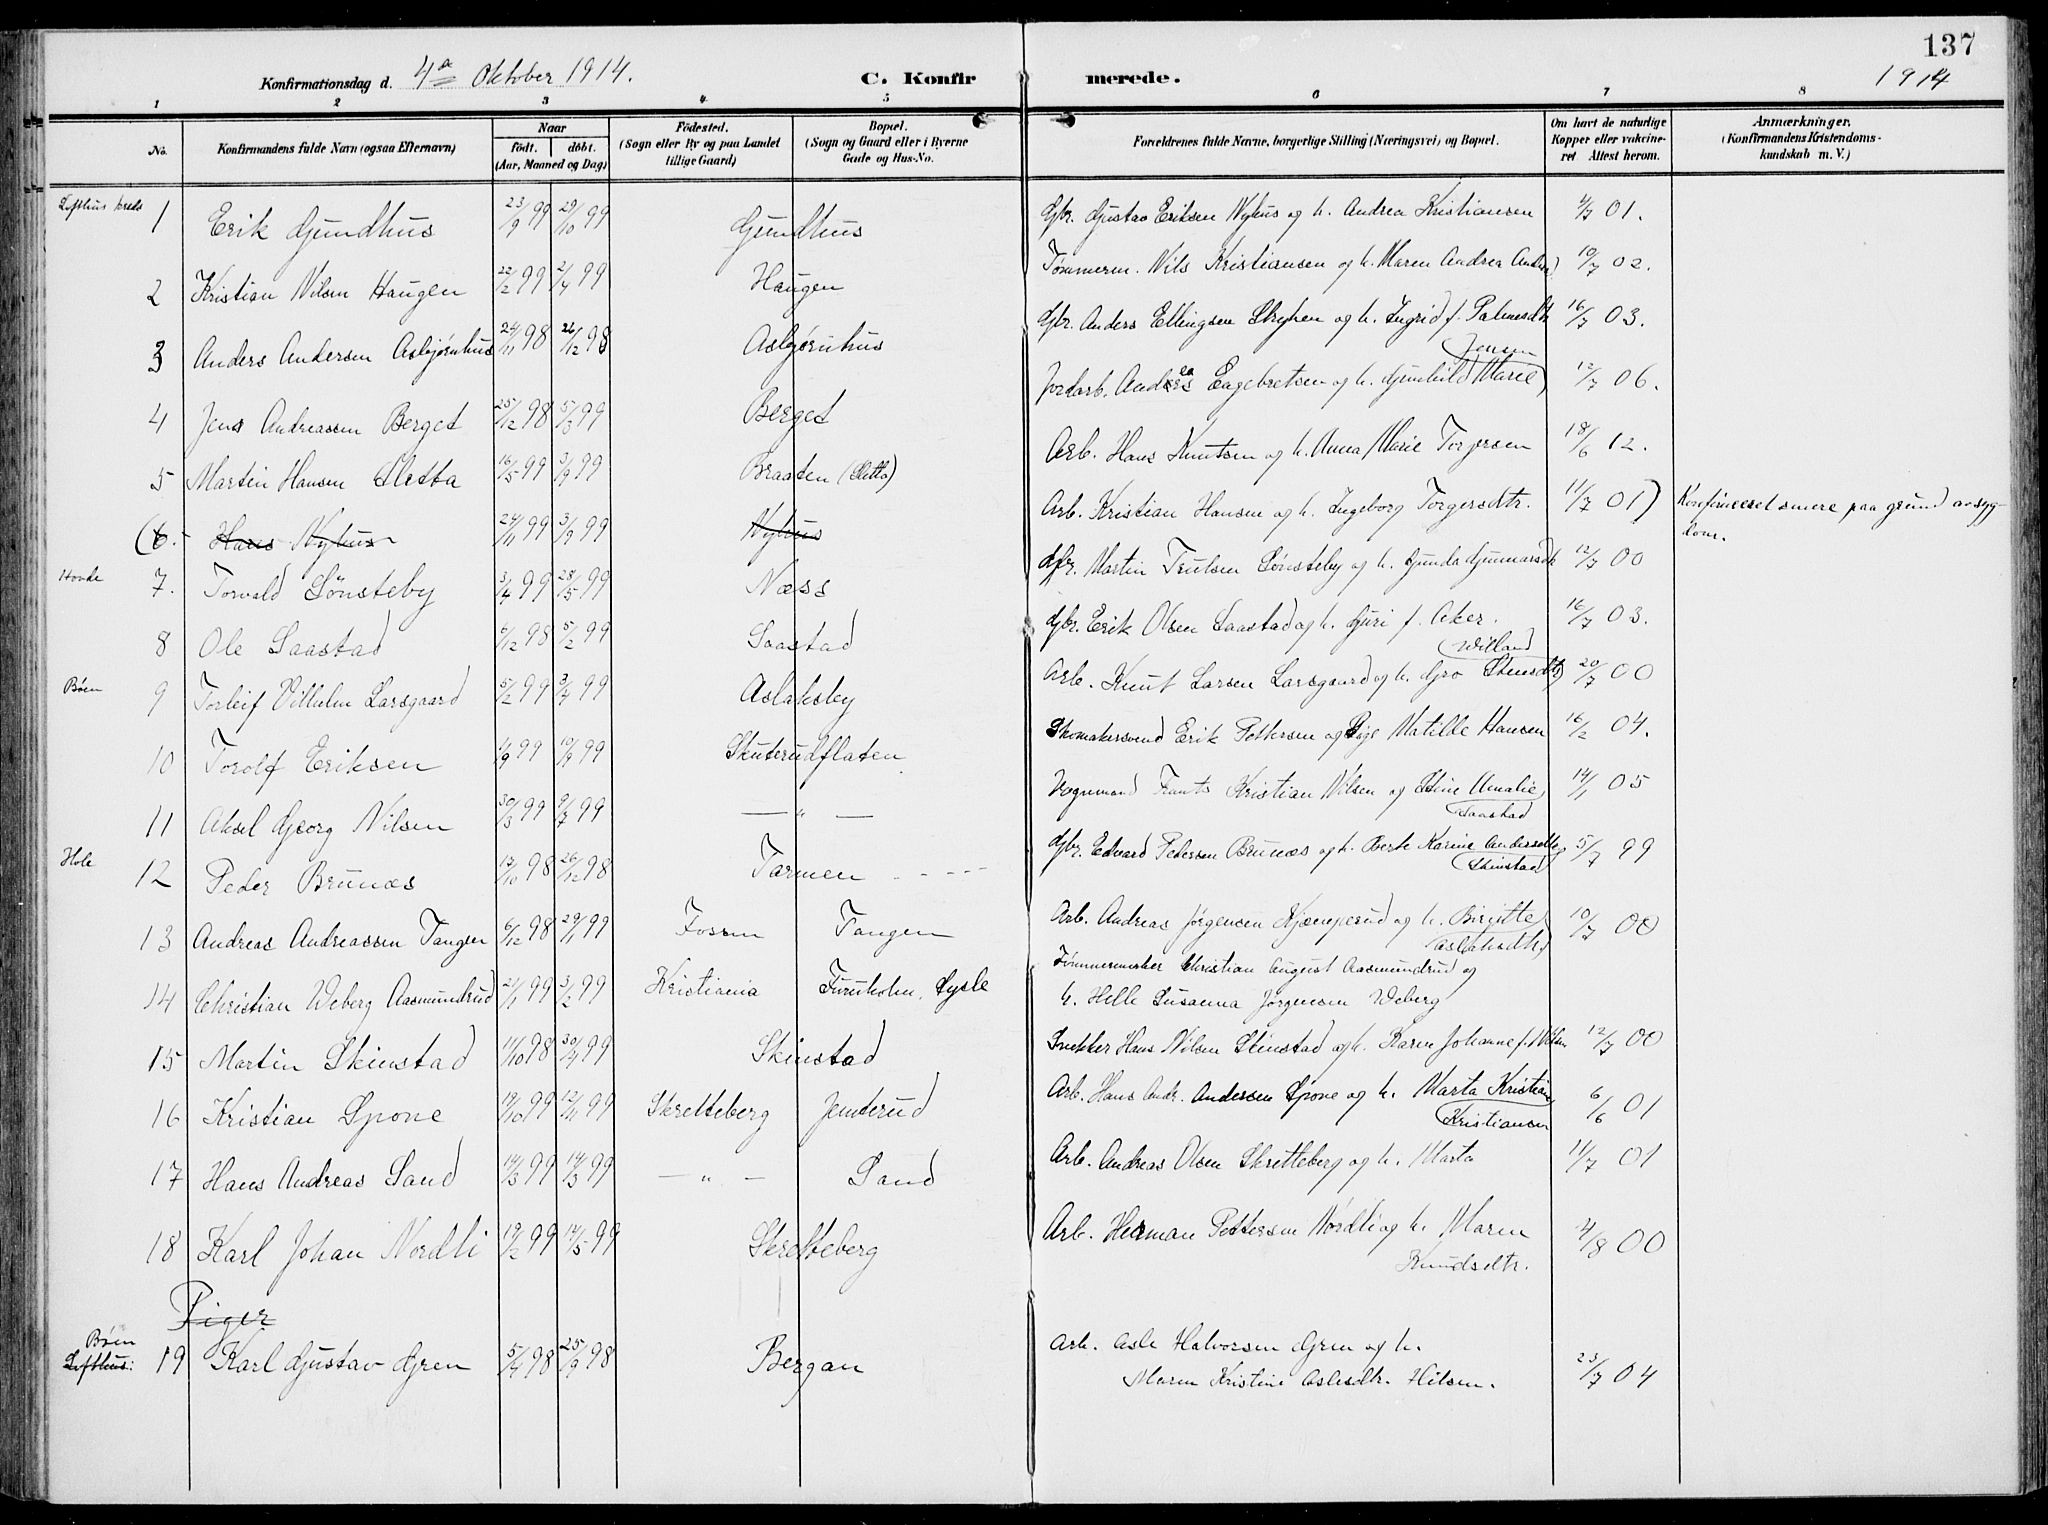 137
Konfirmationsdag d. 4de Oktober 1914. C. Konfirmerede. 1914
1 2 3 4 5 6 7 8
No. Konfirmandens fulde Navn (ogsaa Efternavn) Naar født. døbt. (Aar, Maaned og Dag) Fødested. (Sogn eller By og paa Landet tillige Gaard) Bopæl. (Sogn og Gaard eller i Byerne Gade og Hus-No. Forældrenes fulde Navne, borgerlige Stilling (Næringsvei) og Bopæl. Om havt de naturlige Kopper eller vakcineret. Attest herom. Anmærkninger. (Konfirmandens Kristendomskundskab m. V.)
Lofthus kreds 1 Erik Gjundhus 23/9 99 29/10 99 Gjundhus Gbr. Gustav Eriksen Nyhus og h. Andrea Kristiansen 4/7 01.
2 Kristian Nilsen Haugen 22/2 99 2/4 99 Haugen Tømmerm. Nils Kristiansen og h. Maren Andrea 10/7 02.
3 Anders Andersen Asbjørnhus 24/11 98 26/12 98 Asbjørnhus Gbr. Anders Ellingsen og h. Ingrid f. Palmesdtr 16/7 03.
4 Jens Andreassen Berget 25/12 98 5/3 99 Berget Jordarb. Andreas Engebretsen og h. Gunhild Marie Jensen 12/7 06.
5 Martin Hansen Sletta 16/5 99 3/9 99 Braaten (Sletta) Arb. Hans Knutsen og h. Anna Marie Torgersen 18/6 12.
(6. Hans Nyhus 24/11 99 3/9 99 Nyhus Arb. Kristian Hansen og h. Ingeborg Torgersdtr. 11/7 01) Konfirmeret senere paa grund av sygdom.
Hovde 7. Torvald Sønsteby 3/4 99 28/5 99 Næss Gbr. Martin Trulsen Sønsteby og h. Gunda Gunnarsdtr 12/7 00
8 Ole Saastad 6/12 98 5/2 99 Saastad Gbr. Erik Olsen Saastad og h. Guri f. Aker. 16/7 03.
Bøen 9 Torleif Vilhelm Larsgaard 5/2 99 3/4 99 Aslaksby Arb. Knut Larsen Larsgaard og h. Gro Stensdtr Willand 20/7 00
10 Torolf Eriksen 1/9 99 10/9 99 Skuterudflaten Skomakersvend Erik Pettersen og Pige Matilde Hansen 16/2 04.
11 Aksel Georg Nilsen 30/3 99 9/7 99 — " — Vognmand Frants Kristian Nilsen og Stine Amalie Saastad 14/1 05
Hole 12 Peder Brunæs 17/10 98 26/12 98 Tarmen - - - - - Gbr. Edvard Pedersen Brunæs og h. Berte Karine Andersdtr Skinstad 5/7 99
13 Andreas Andreassen Tangen 6/12 98 29/1 99 Fossen Tangen Arb. Andreas Jørgensen Kjæmperud og h. Birgitte Aslaksdtr 10/7 00
14 Christian Weberg Aasmundrud 21/1 99 3/2 99 Kristiania Furuholm, Sysle Tømmermerker Christian August Aasmundrud og
h. Helle Susanna Jørgensen Weberg
15 Martin Skinstad 11/10 98 30/4 99 Skinstad Snekker Hans Nilsen Skinstad og h. Karen Johanne f. Nilsen 12/7 00
16 Kristian Spone 19/10 99 12/11 99 Skretteberg Jenterud Arb. Hans Andr. Andersen Spone og h. Marta Kristine Kristiansen 6/6 01
17 Hans Andreas Sand 14/3 99 14/3 99 — " — Sand Arb. Andreas Olsen Skretteberg og h. Marta 11/7 01
18 Karl Johan Nordli 19/2 99 14/5 99 Skretteberg Arb. Herman Pettersen Nordli og h. Maren
Knudsdtr. 4/8 00
Piger
Bøen
Lofthus: 19 Karl Gustav Gren 5/4 98 25/9 98 Bergan Arb. Asle Halvorsen Gren og h.
Maren Kristine Aslesdtr. Hilsen. 23/7 04